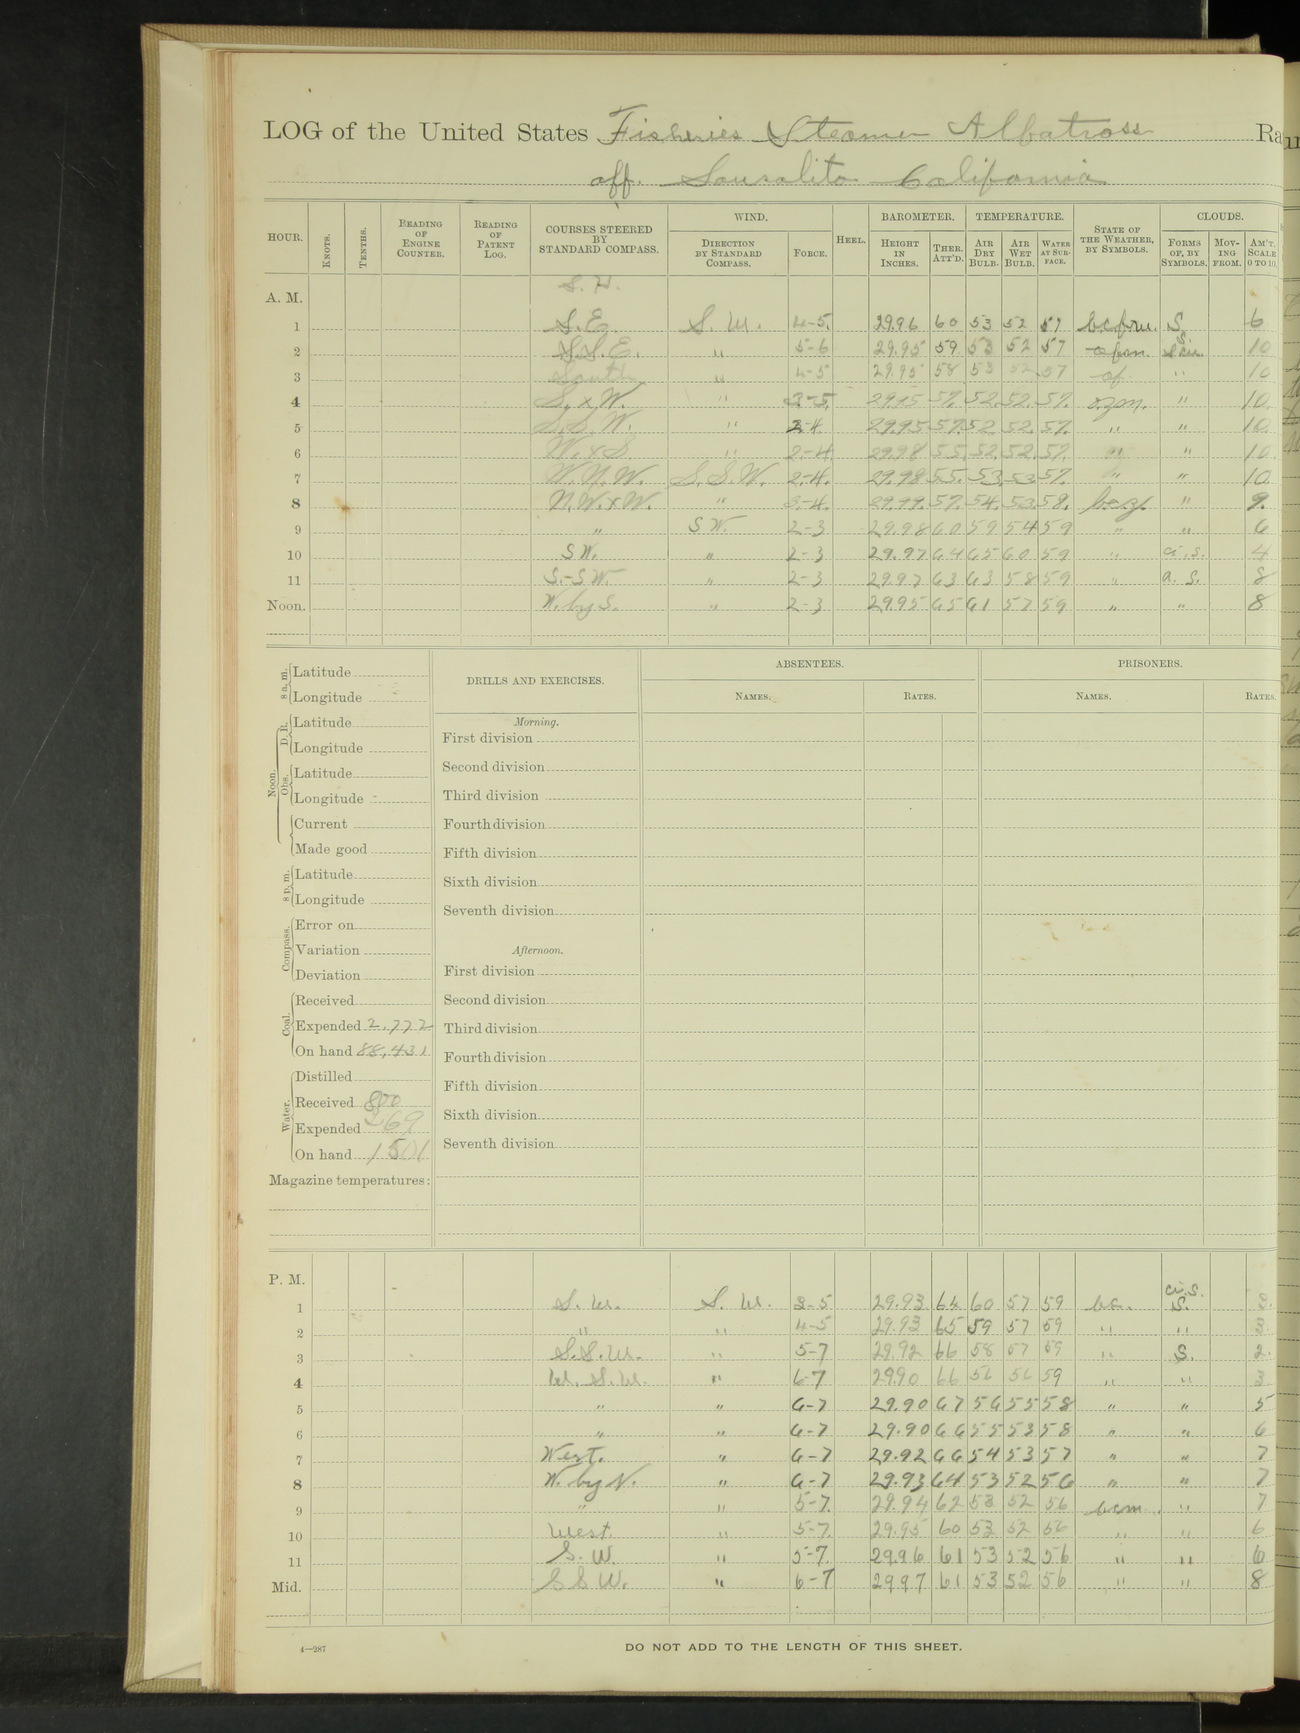 LOG of the United States Fisheries Steamer Albatross Ra
off Sausalito California
HOUR. KNOTS. TENTHS. READING OF ENGINE COUNTER. READING OF PATENT LOG. COURSES STEERED BY STANDARD COMPASS. WIND. DIRECTION BY STANDARD COMPASS. FORCE. HEEL. BAROMETER. HEIGHT IN INCHES. THER. ATT'D. TEMPERATURE. AIR DRY BULB. AIR WET BULB. WATER AT SURFACE. STATE OF THE WEATHER, BY SYMBOLS. CLOUDS. FORMS OF, BY SYMBOLS. MOVING FROM. AM'T, SCALE 0 TO 10.
A. M. S. H.
1 S.E. S. W. 4-5 29.96 60 53 52 57 S. 6
2 S.S.E. " 5-6 29.95 59 53 52 57 10
3 South " 4-5 29.95 58 53 52 57 of " 10
4 S. x W. " 3-5 29.95 57. 52. 52. 57. " 10.
5 S.S.W. " 2-4 29.95 57. 52 52. 57. " " 10.
6 W. x S. " 2-4 29.98 55. 52. 52. 57. " " 10.
7 W.N.W. S.S.W. 2-4. 29.98 55. 53 53 57. " " 10.
8 N.W. x W. " 3-4. 29.99 57. 54. 53. 58. bczf. " 9.
9 " SW. 2-3 29.98 60 59 54 59 " " 6
10 SW. " 2-3 29.97 64 65 60 59 " ci. s. 4
11 S.-SW. " 2-3 29.97 63 63 58 59 " a. s. 8
Noon. W. by S. " 2-3 29.95 65 61 57 59 " " 8
8 a. m. Latitude
Longitude
Noon. D. R. Latitude
Longitude
Obs. Latitude
Longitude
Current
Made good
8 p. m. Latitude
Longitude
Compass. Error on
Variation
Deviation
Coal. Received
Expended 2,772
On hand 88,431
Water. Distilled
Received 800
Expended
On hand 1501
Magazine temperatures:
DRILLS AND EXERCISES.
Morning.
First division
Second division
Third division
Fourth division
Fifth division
Sixth division
Seventh division
Afternoon.
First division
Second division
Third division
Fourth division
Fifth division
Sixth division
Seventh division
ABSENTEES.
NAMES. RATES.
PRISONERS.
NAMES. RATES.
P. M.
1 S. W. S. W. 3-5 29.93 64 60 57 59 bc. ci. s. S. 3.
2 " " 4-5 29.93 65 59 57 59 " " 3.
3 S.S.W. " 5-7 29.92 66 58 57 59 " S. 2.
4 W. S.W. " 6-7 29.90 66 56 56 59 " " 3
5 " " 6-7 29.90 67 56 55 58 " " 5
6 " " 6-7 29.90 66 55 53 58 " " 6
7 West. " 6-7 29.92 66 54 53 57 " " 7
8 W. by N. " 6-7 29.93 64 53 52 56 " " 7
9 " " 5-7. 29.94 62 53 52 56 bcm " 7
10 West " 5-7. 29.95 60 53 52 56 " " 6
11 S. W. " 5-7. 29.96 61 53 52 56 " " 6
Mid. SSW. " 6-7 29.97 61 53 52 56 " " 8
4—287
DO NOT ADD TO THE LENGTH OF THIS SHEET.